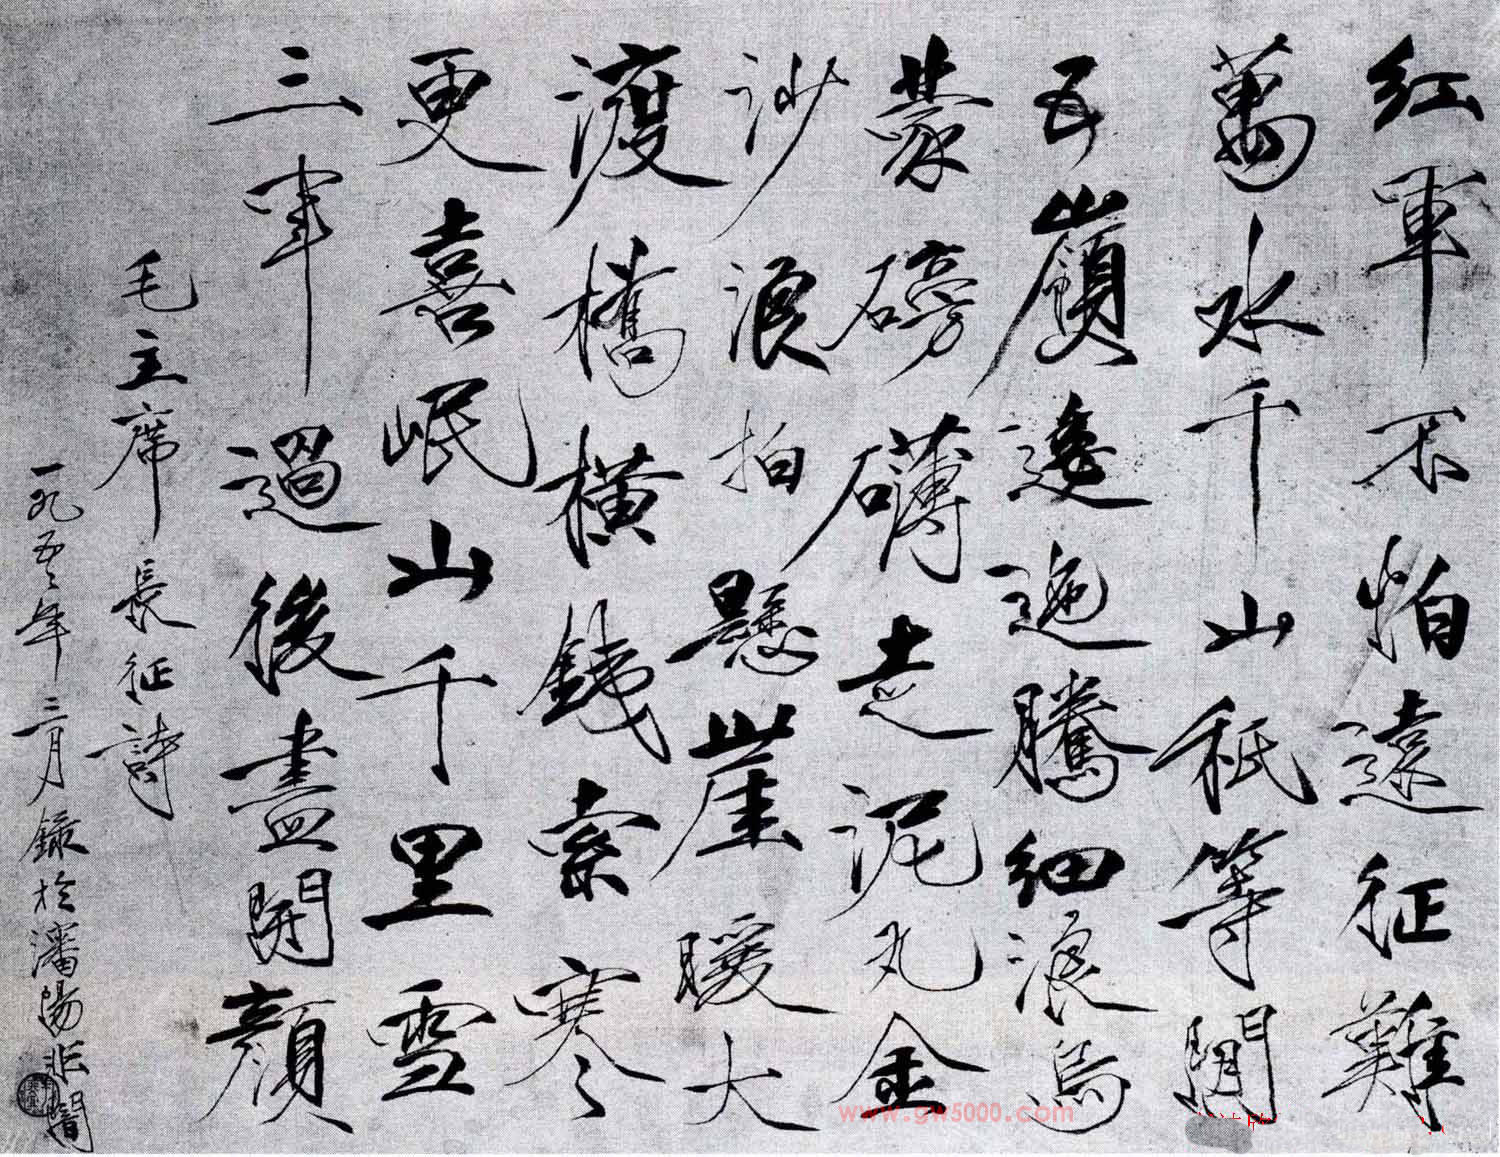 紅軍不怕遠征難
萬水千山秖等閒
五嶺逶迤騰細浪烏
蒙磅礴走泥丸金
沙浪拍懸崖暖大
渡橋橫鐵索寒
更喜岷山千里雪
三軍過後盡開顏
毛主席長征詩
一九五二年三月錄於瀋陽非闇
www.gw5000.com